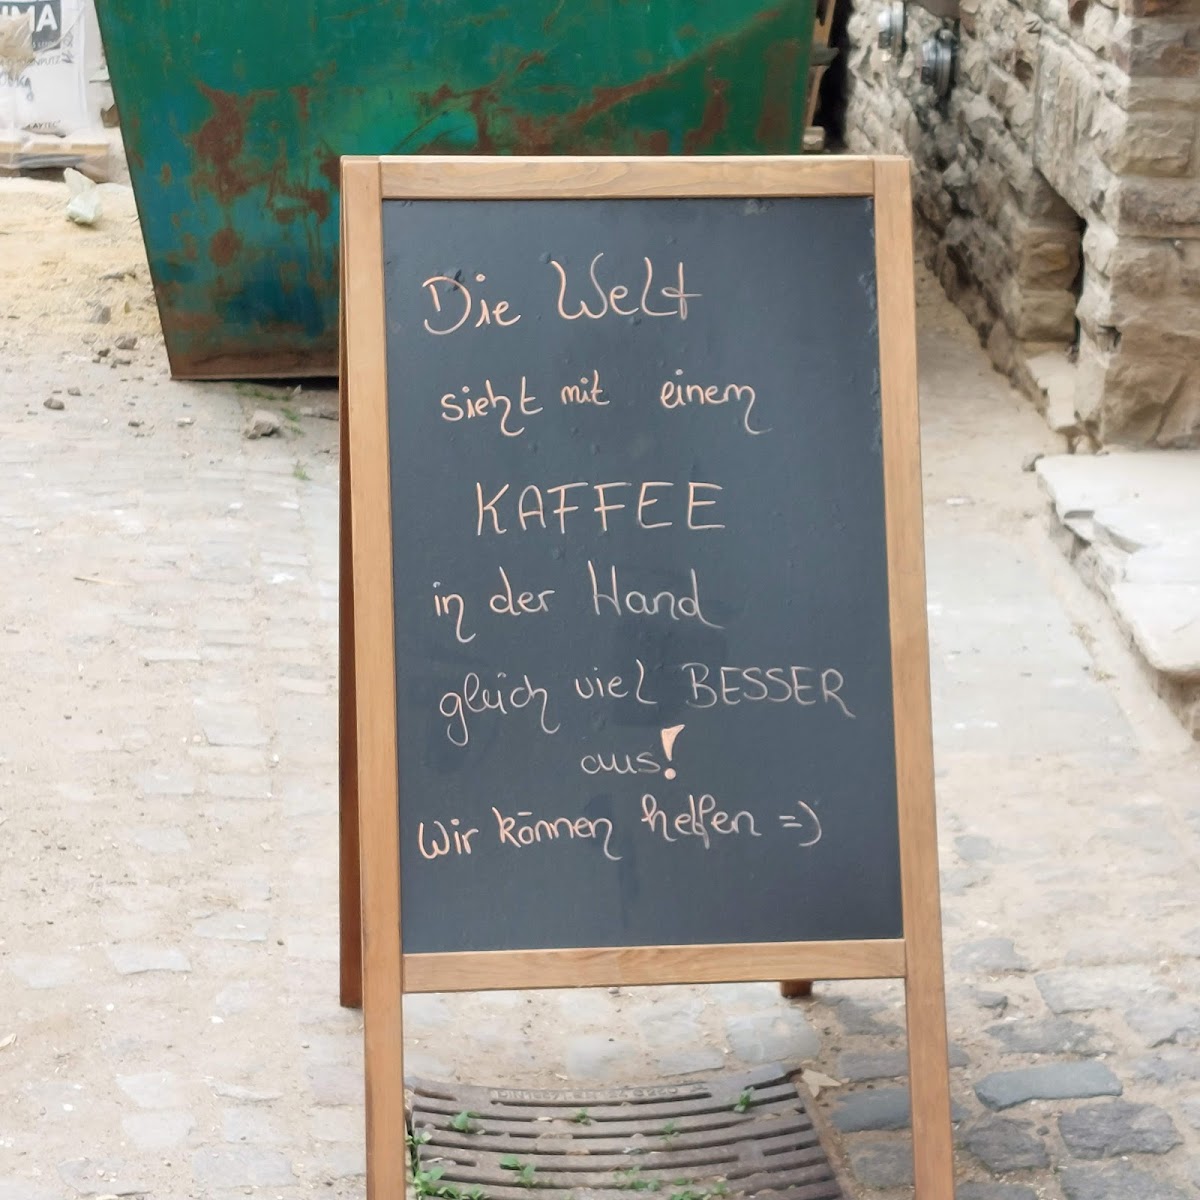 Die Welt
sieht mit einem
KAFFEE
in der Hand
gleich viel BESSER
aus!
Wir können helfen =)